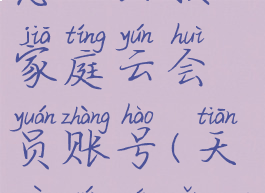 jiā tíng yún huì
家庭云会
yuán zhàng hào tiān
员账号(天